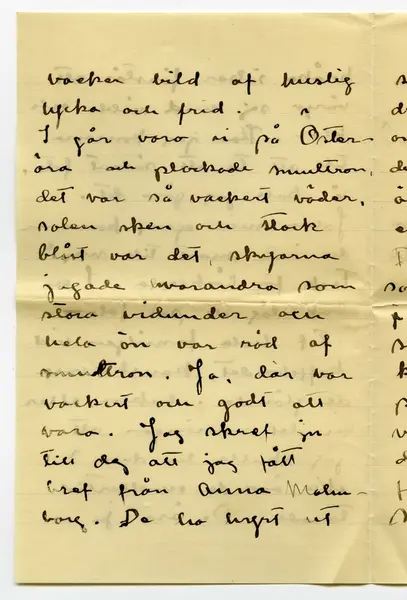 vacker bild af huslig
lycka och frid.
I går voro vi på Öster-
öra och plockade smultron,
det var så vackert väder,
solen sken och stark
blåst var det, skyarna
jagade hvarandra som
stora vidunder och
hela ön var röd af
smultron. Ja, där var
vackert och godt att
vara. Jag skref ju
till dig att jag fått
bref från Anna Malm-
borg. De ha hyrt ut